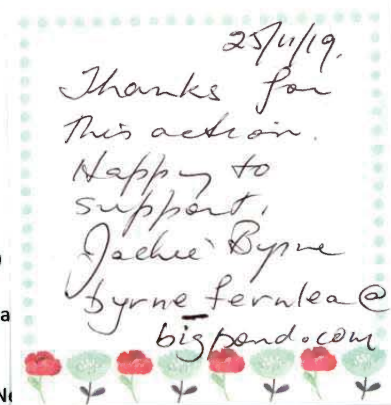 25/11/19.
Thanks for
this action.
Happy to
support,
Jackie Byrne
byrne_fernlea@
bigpond.com
)
a
No